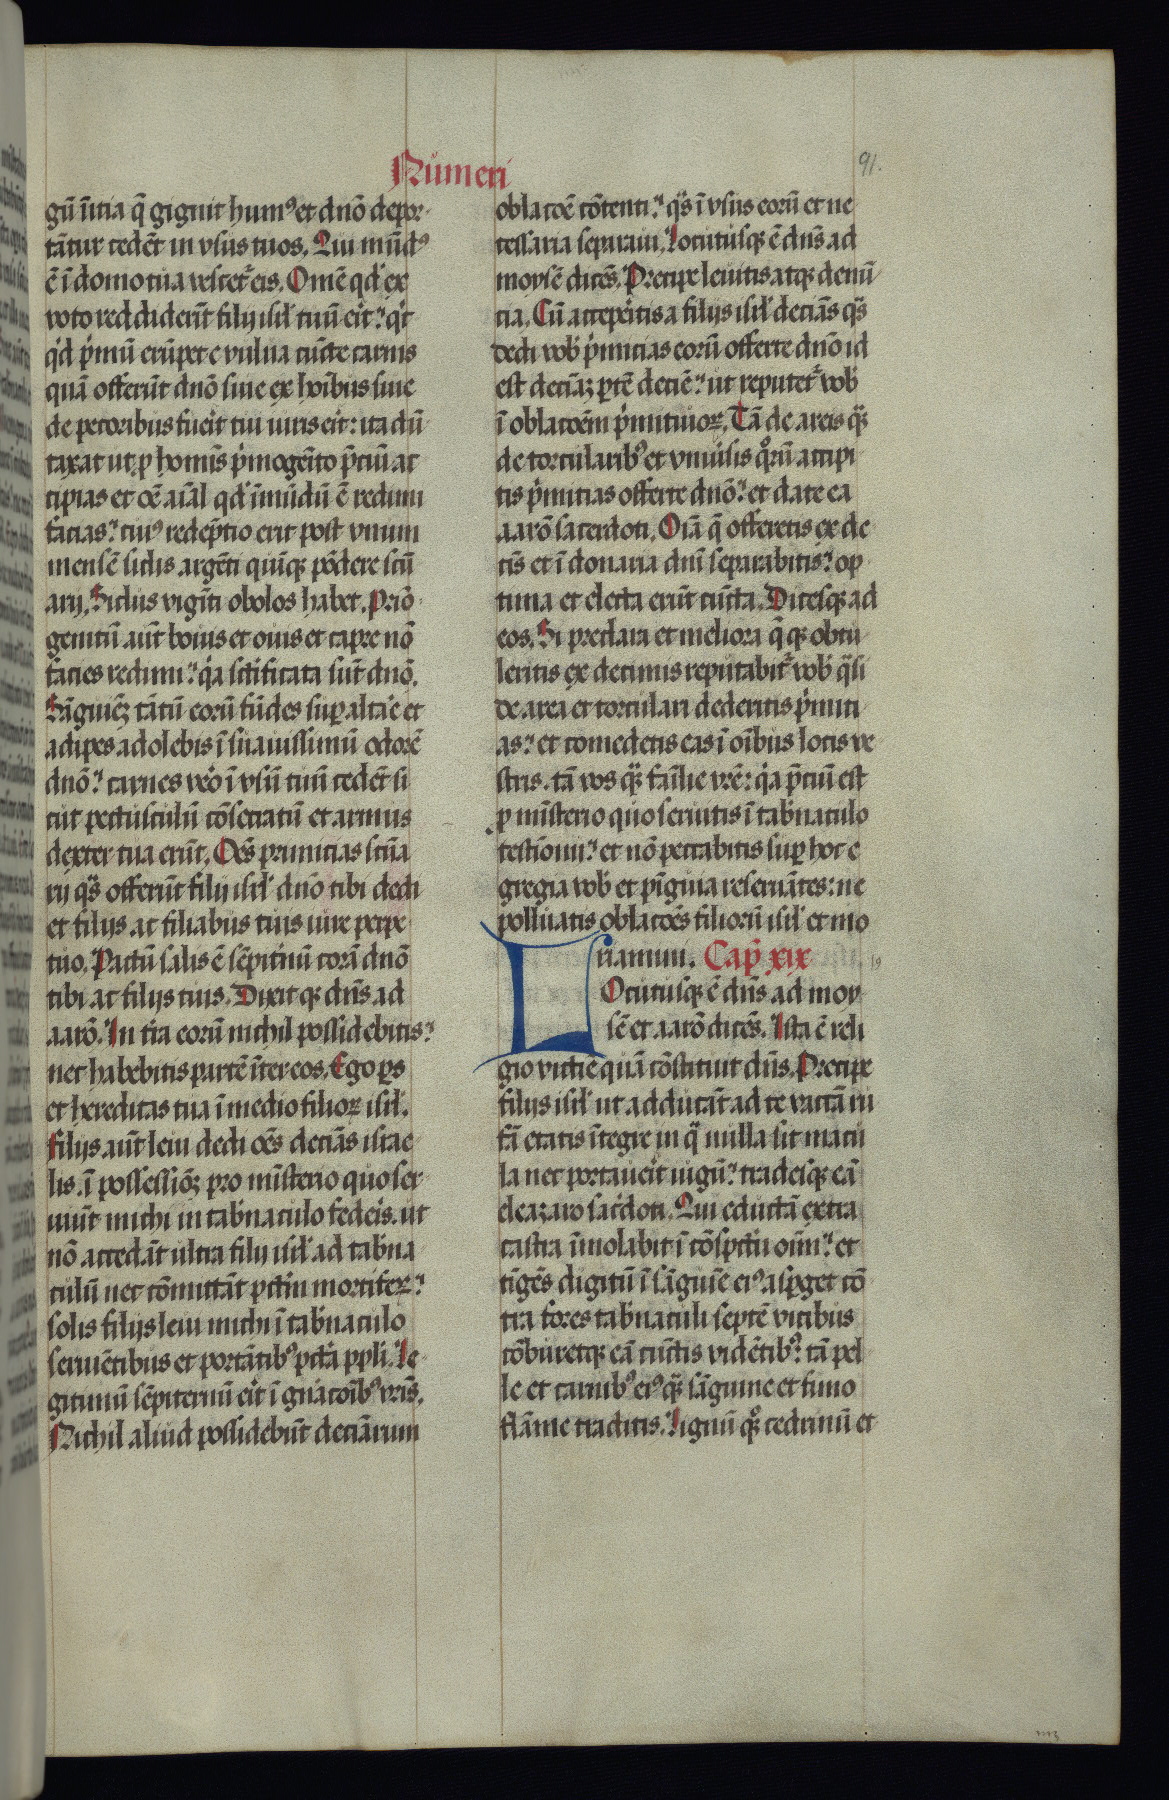 Numeri
91.
gū īitia q̄ gignit humꝰ et dnō depor
tātur cedēt in vsus tuos. Qui mūdꝰ
ē ī domo tua vescet᷑ eis. Omē qd̓ ex
voto reddiderūt filij isrl̓ tuū erit: q̓c
q̓d p̓mū erūpet e vulua cūcte carnis
quā offerūt dnō siue ex hoı̄bus siue
de pecoribus fu̓it tui iuris erit: ita dū
taxat ut ꝑ homīs p̓mogēito p̄ciū ac
cipias et oē aīal qd̓ īmūdū ē redimi
facias: cuiꝰ redēptio erit post vnum
mensē siclis argēti quīqꝫ pōdere scū
arij. Siclus vigīti obolos habet. Primo
genitū aūt bouis et ouis et capre nō
facies redimi: q̓a scīficata sūt dnō.
Sāguiēꝫ tātū eorū fūdes suꝑ altar̄e et
adipes adolebis ī suauissimū odorē
dnō: carnes ve̓o ī vsū tuū cedēt si
cut pectusculū cōsecratū et armus
dexter tua erūt. Oēs primicias scūa
rij q̄s offerūt filij isrl̓ dnō tibi dedi
et filijs ac filiabus tuis iure perpe
tuo. Pactū salis ē sēpit̓nū corā dnō
tibi ac filijs tuis. Dixitqꝫ dn̄s ad
aarō. In tr̄a eorū nichil possidebitis:
nec habebitis partē īter eos. Ego ꝑs
et hereditas tua ī medio filioꝝ isrl̓.
Filijs aūt leui dedi oēs deciās israe
lis. ī possessiōꝫ pro mīsterio quo ser
uiūt michi in tab̓naculo fed̓eis. ut
nō accedāt ultra filij isrl̓ ad tab̓na
culū nec cōmittāt pctm̄ mortifeꝝ:
solis filijs leui michi ī tab̓naculo
seruiētibus et portātibꝰ pctā̄ ppli. Le
gitimū sēpiternū erit ī gn̄acoı̄bꝰ vrīs.
Nichil aliud possidebūt deciārum
oblacoē cōtenti: q̄s ī vsus eorū et ne
cessaria separaui. Locutusqꝫ ē dn̄s ad
moysē dicēs. Precipe leuitis atqꝫ denū
cia. Cū acceper̄itis a filijs isrl̓ deciās q̄s
dedi vob̓ p̓micias eorū offerte dnō id
est deciāꝫ ꝑtē deciē: ut reputet᷑ vob̓
ī oblacoēm p̓mitiuoꝝ. Tā de areis qꝫ
de torcularibꝰ et vniu̓sis q̊rū accipi
tis p̓micias offerte dnō: et date ea
aarō sacerdoti. Oīa q̄ offeretis ex de
cīs et ī donaria dnī separabitis: op
tima et electa erūt cūcta. Dicesqꝫ ad
eos. Si preclara et meliora q̄qꝫ obtu
leritis ex decimis reputabit᷑ vob̓ q̄si
de area et torculari dederitis p̓miti
as: et comedetis eas ī oı̄bus locis ve
stris. tā vos qꝫ fāilie vrē: q̓a p̄ciū est
ꝓ mīsterio quo seruitis ī tab̓naculo
testīonij: et nō peccabitis suꝑ hoc e
gregia vob̓ et pīguia reseruātes: ne
polluatis oblacoēs filiorū isrl̓ et mo
riamini. Cap̄ xix
19
LOcutusqꝫ ē dn̄s ad moy
sē et aarō dicēs. Ista ē reli
gio victie quā cōstituit dn̄s. Precipe
filijs isrl̓ ut adducāt ad te vaccā ru
fā etatis ītegre in q̄ nulla sit macu
la nec portaueı̓t iugū: tradeı̓sqꝫ eā
eleazaro sac̓doti. Qui eductā extra
castra īmolabit ī cōspctu oīm: et
tīgēs digitū ī sāguīe eiꝰ asp̄get cō
tra fores tab̓naculi septē vicibus
cōburetqꝫ eā cūctis vidētibꝰ: tā pel
le et carnibꝰ eiꝰ qꝫ sāguine et fimo
flāme traditis. Lignū qꝫ cedrinū et